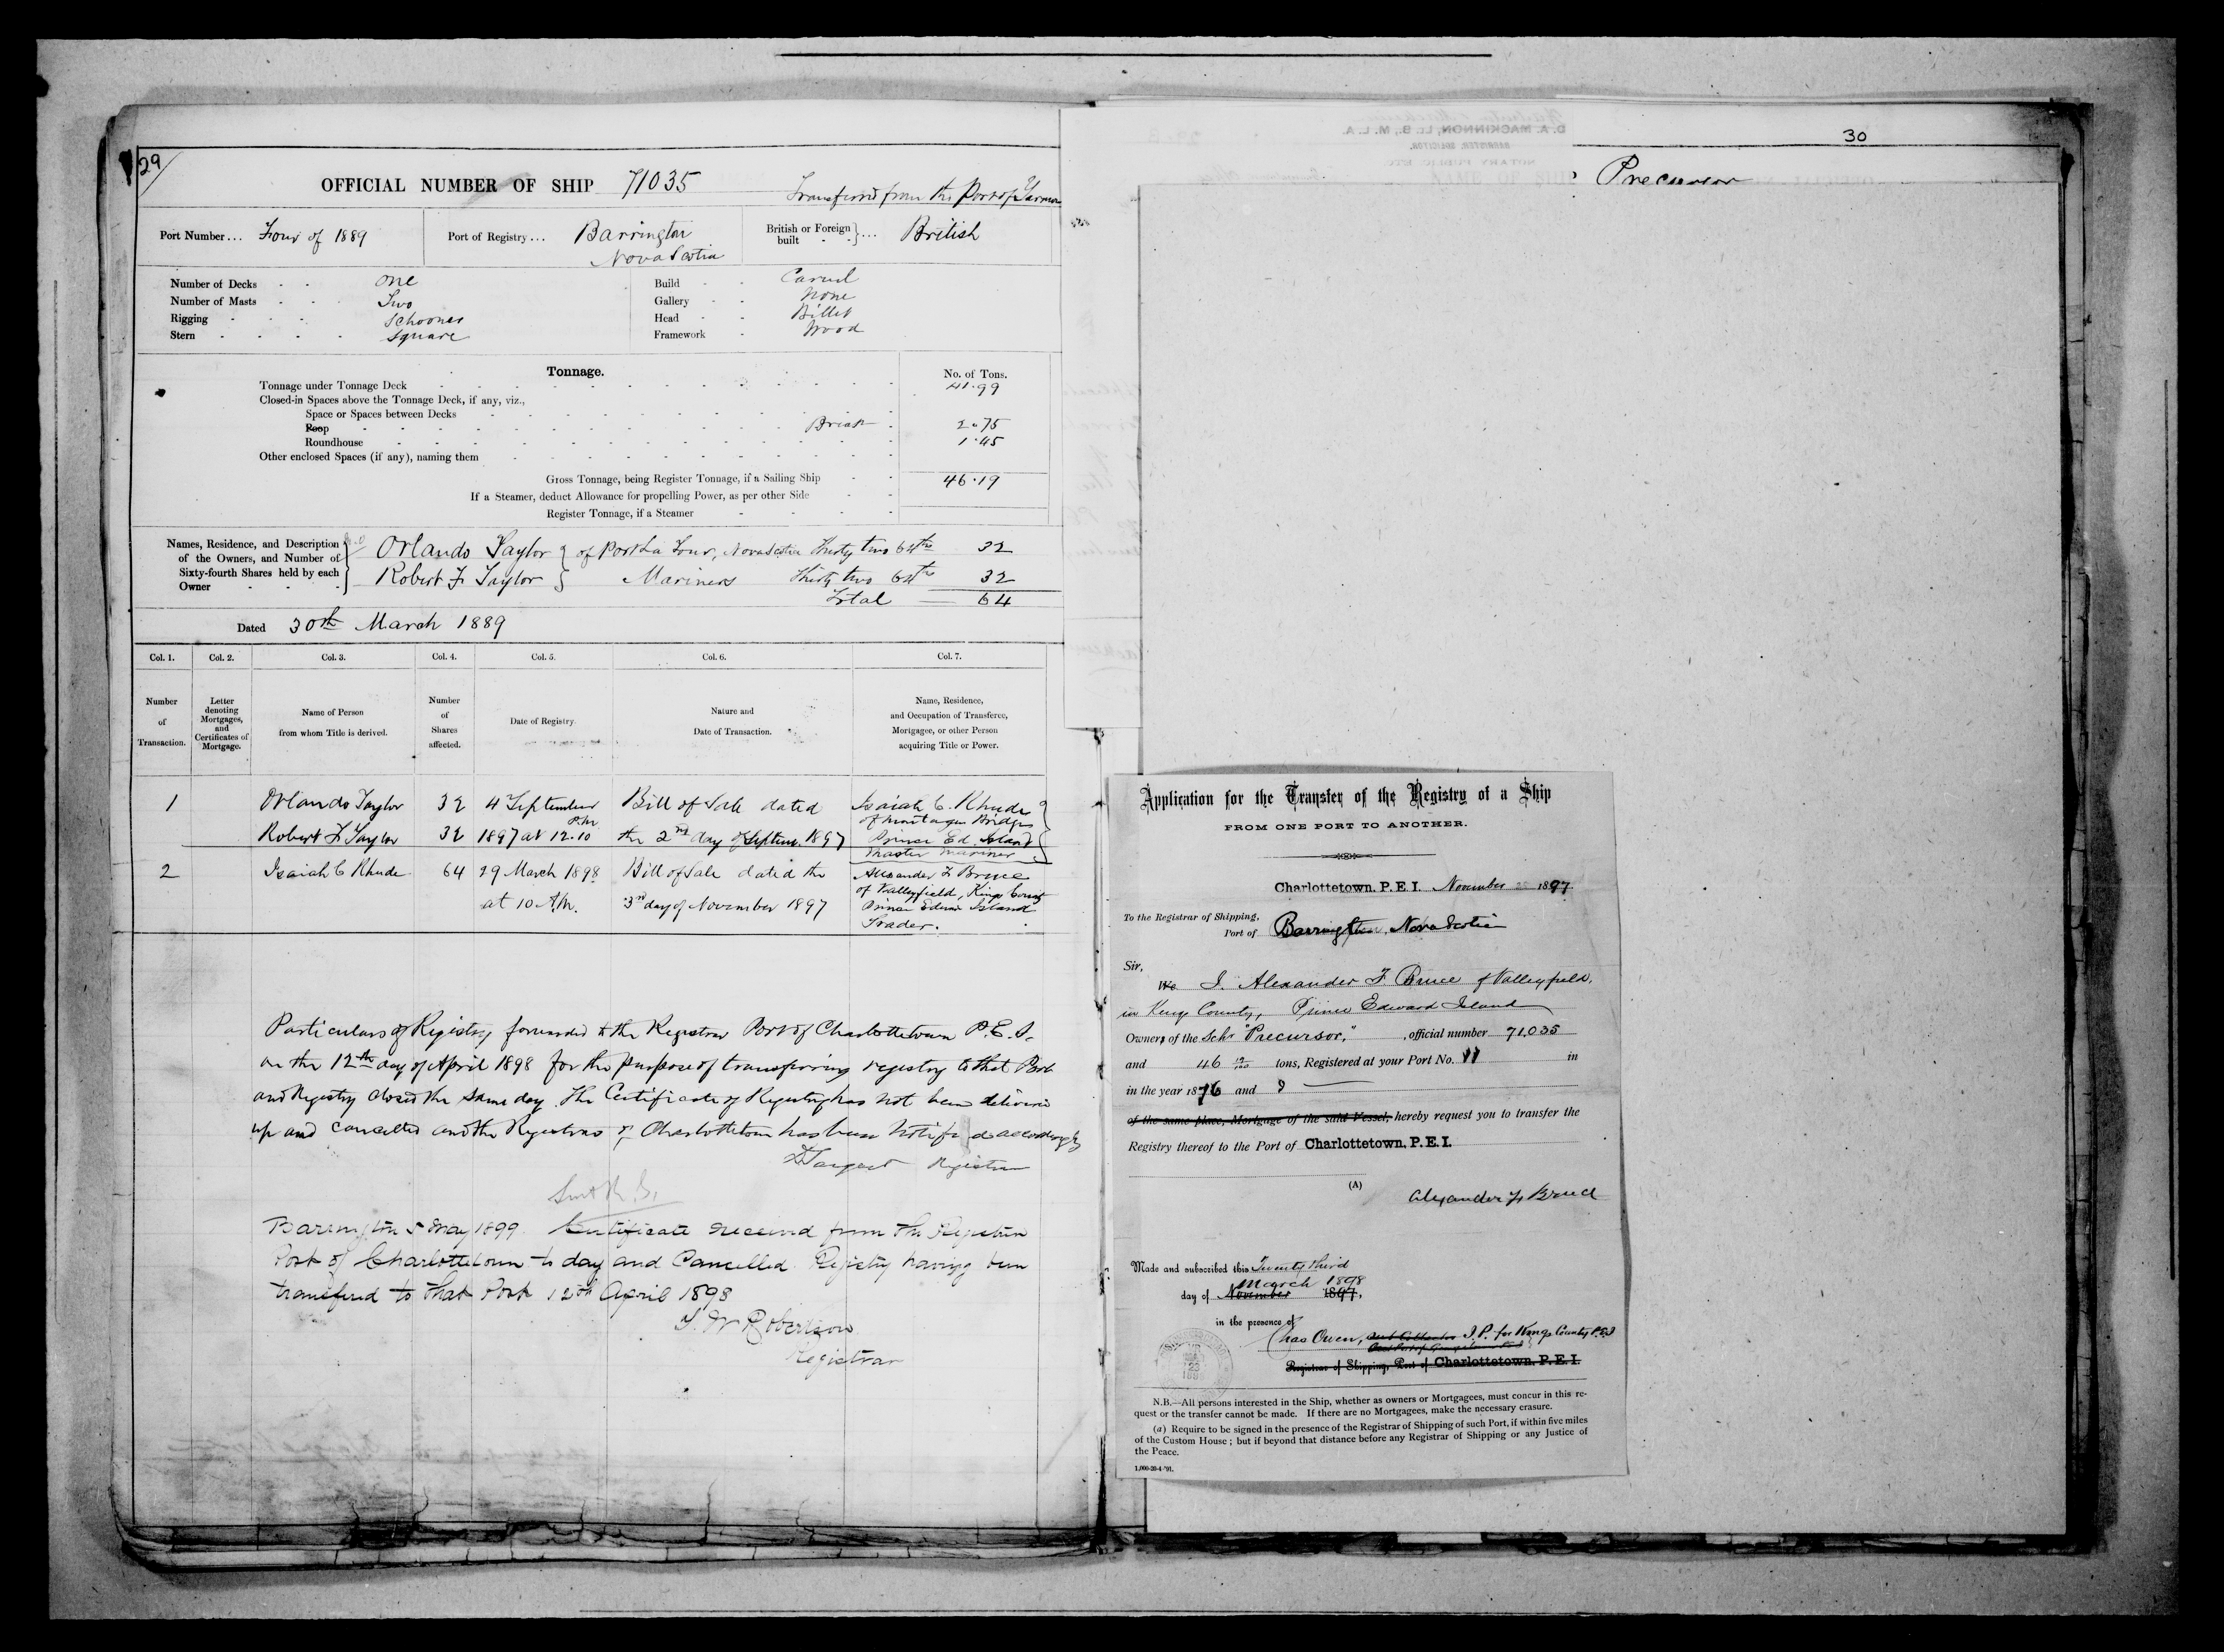 29
OFFICIAL NUMBER OF SHIP 71035
Transferred from the Port of Yarmo
Port Number... Four of 1889
Port of Registry... Barrington
Nova Scotia
British or Foreign built ... British
Number of Decks - - one
Number of Masts - - Two
Rigging - - - Schooner
Stern - - - - Square
Build - - Carvel
Gallery - - None
Head - - Billet
Framework - Wood
Tonnage.
No. of Tons.
Tonnage under Tonnage Deck 41.99
Closed-in Spaces above the Tonnage Deck, if any, viz.,
Space or Spaces between Decks
Poop Break 2.75
Roundhouse 1.45
Other enclosed Spaces (if any), naming them
Gross Tonnage, being Register Tonnage, if a Sailing Ship 46.19
If a Steamer, deduct Allowance for propelling Power, as per other Side
Register Tonnage, if a Steamer
Names, Residence, and Description of the Owners, and Number of Sixty-fourth Shares held by each Owner
Orlando Taylor } of Port La Tour, Nova Scotia Thirty two 64ths 32
Robert F Taylor } Mariners Thirty two 64ths 32
Total 64
Dated 30th March 1889
Col. 1. Col. 2. Col. 3. Col. 4. Col. 5. Col. 6. Col. 7.
Number of Transaction.
Letter denoting Mortgages, and Certificates of Mortgage.
Name of Person from whom Title is derived.
Number of Shares affected.
Date of Registry.
Nature and Date of Transaction.
Name, Residence, and Occupation of Transferee, Mortgagee, or other Person acquiring Title or Power.
1 Orlando Taylor 32 4 September Bill of Sale dated Isaiah C. Rhude
of Montague Bridge
Robert F Taylor 32 1897 at 12.10 P.M. the 2nd day of Septem. 1897 Prince Ed. Island
Master Mariner
2 Isaiah C Rhude 64 29 March 1898 Bill of Sale dated the Alexander F Bruce
of Valleyfield, Kings County
at 10 A.M. 3rd day of November 1897 Prince Edward Island
Trader.
Particulars of Registry forwarded to the Registrar Port of Charlottetown P.E.I.
on the 12th day of April 1898 for the purpose of transferring registry to that Port
and Registry closed the same day. The Certificate of Registry has not been delivered
up and cancelled and the Registrar of Charlottetown has been notified accordingly
Sargent Registrar
Barrington 5 May 1899 Certificate received from the Registrar
Port of Charlottetown to day and Cancelled Registry having been
transferred to that Port 12th April 1898
T. W Robertson
Registrar
D. A. MACKINNON, LL. B., M. L. A.
BARRISTER, SOLICITOR,
NOTARY PUBLIC, ETC.
30
Precursor
Application for the Transfer of the Registry of a Ship
FROM ONE PORT TO ANOTHER.
Charlottetown, P.E.I. November 1897
To the Registrar of Shipping,
Port of Barrington, Nova Scotia
Sir,
We I. Alexander F Bruce of Valleyfield,
in Kings County, Prince Edward Island
Owners of the Schr "Precursor," , official number 71.035
and 46 19/100 tons, Registered at your Port No. 11 in
in the year 1876 and
of the same place, Mortgage of the said Vessel, hereby request you to transfer the
Registry thereof to the Port of Charlottetown, P.E.I.
(A)
Alexander F Bruce
Made and subscribed this Twenty third
March 1898
day of November 1897,
in the presence of
Chas Owen, Sub Collector J.P. for Kings County P.E.I
Registrar of Shipping, Port of Charlottetown, P.E.I.
N.B.—All persons interested in the Ship, whether as owners or Mortgagees, must concur in this re-
quest or the transfer cannot be made. If there are no Mortgagees, make the necessary erasure.
(a) Require to be signed in the presence of the Registrar of Shipping of such Port, if within five miles
of the Custom House; but if beyond that distance before any Registrar of Shipping or any Justice of
the Peace.
1,000-20-4-'91.